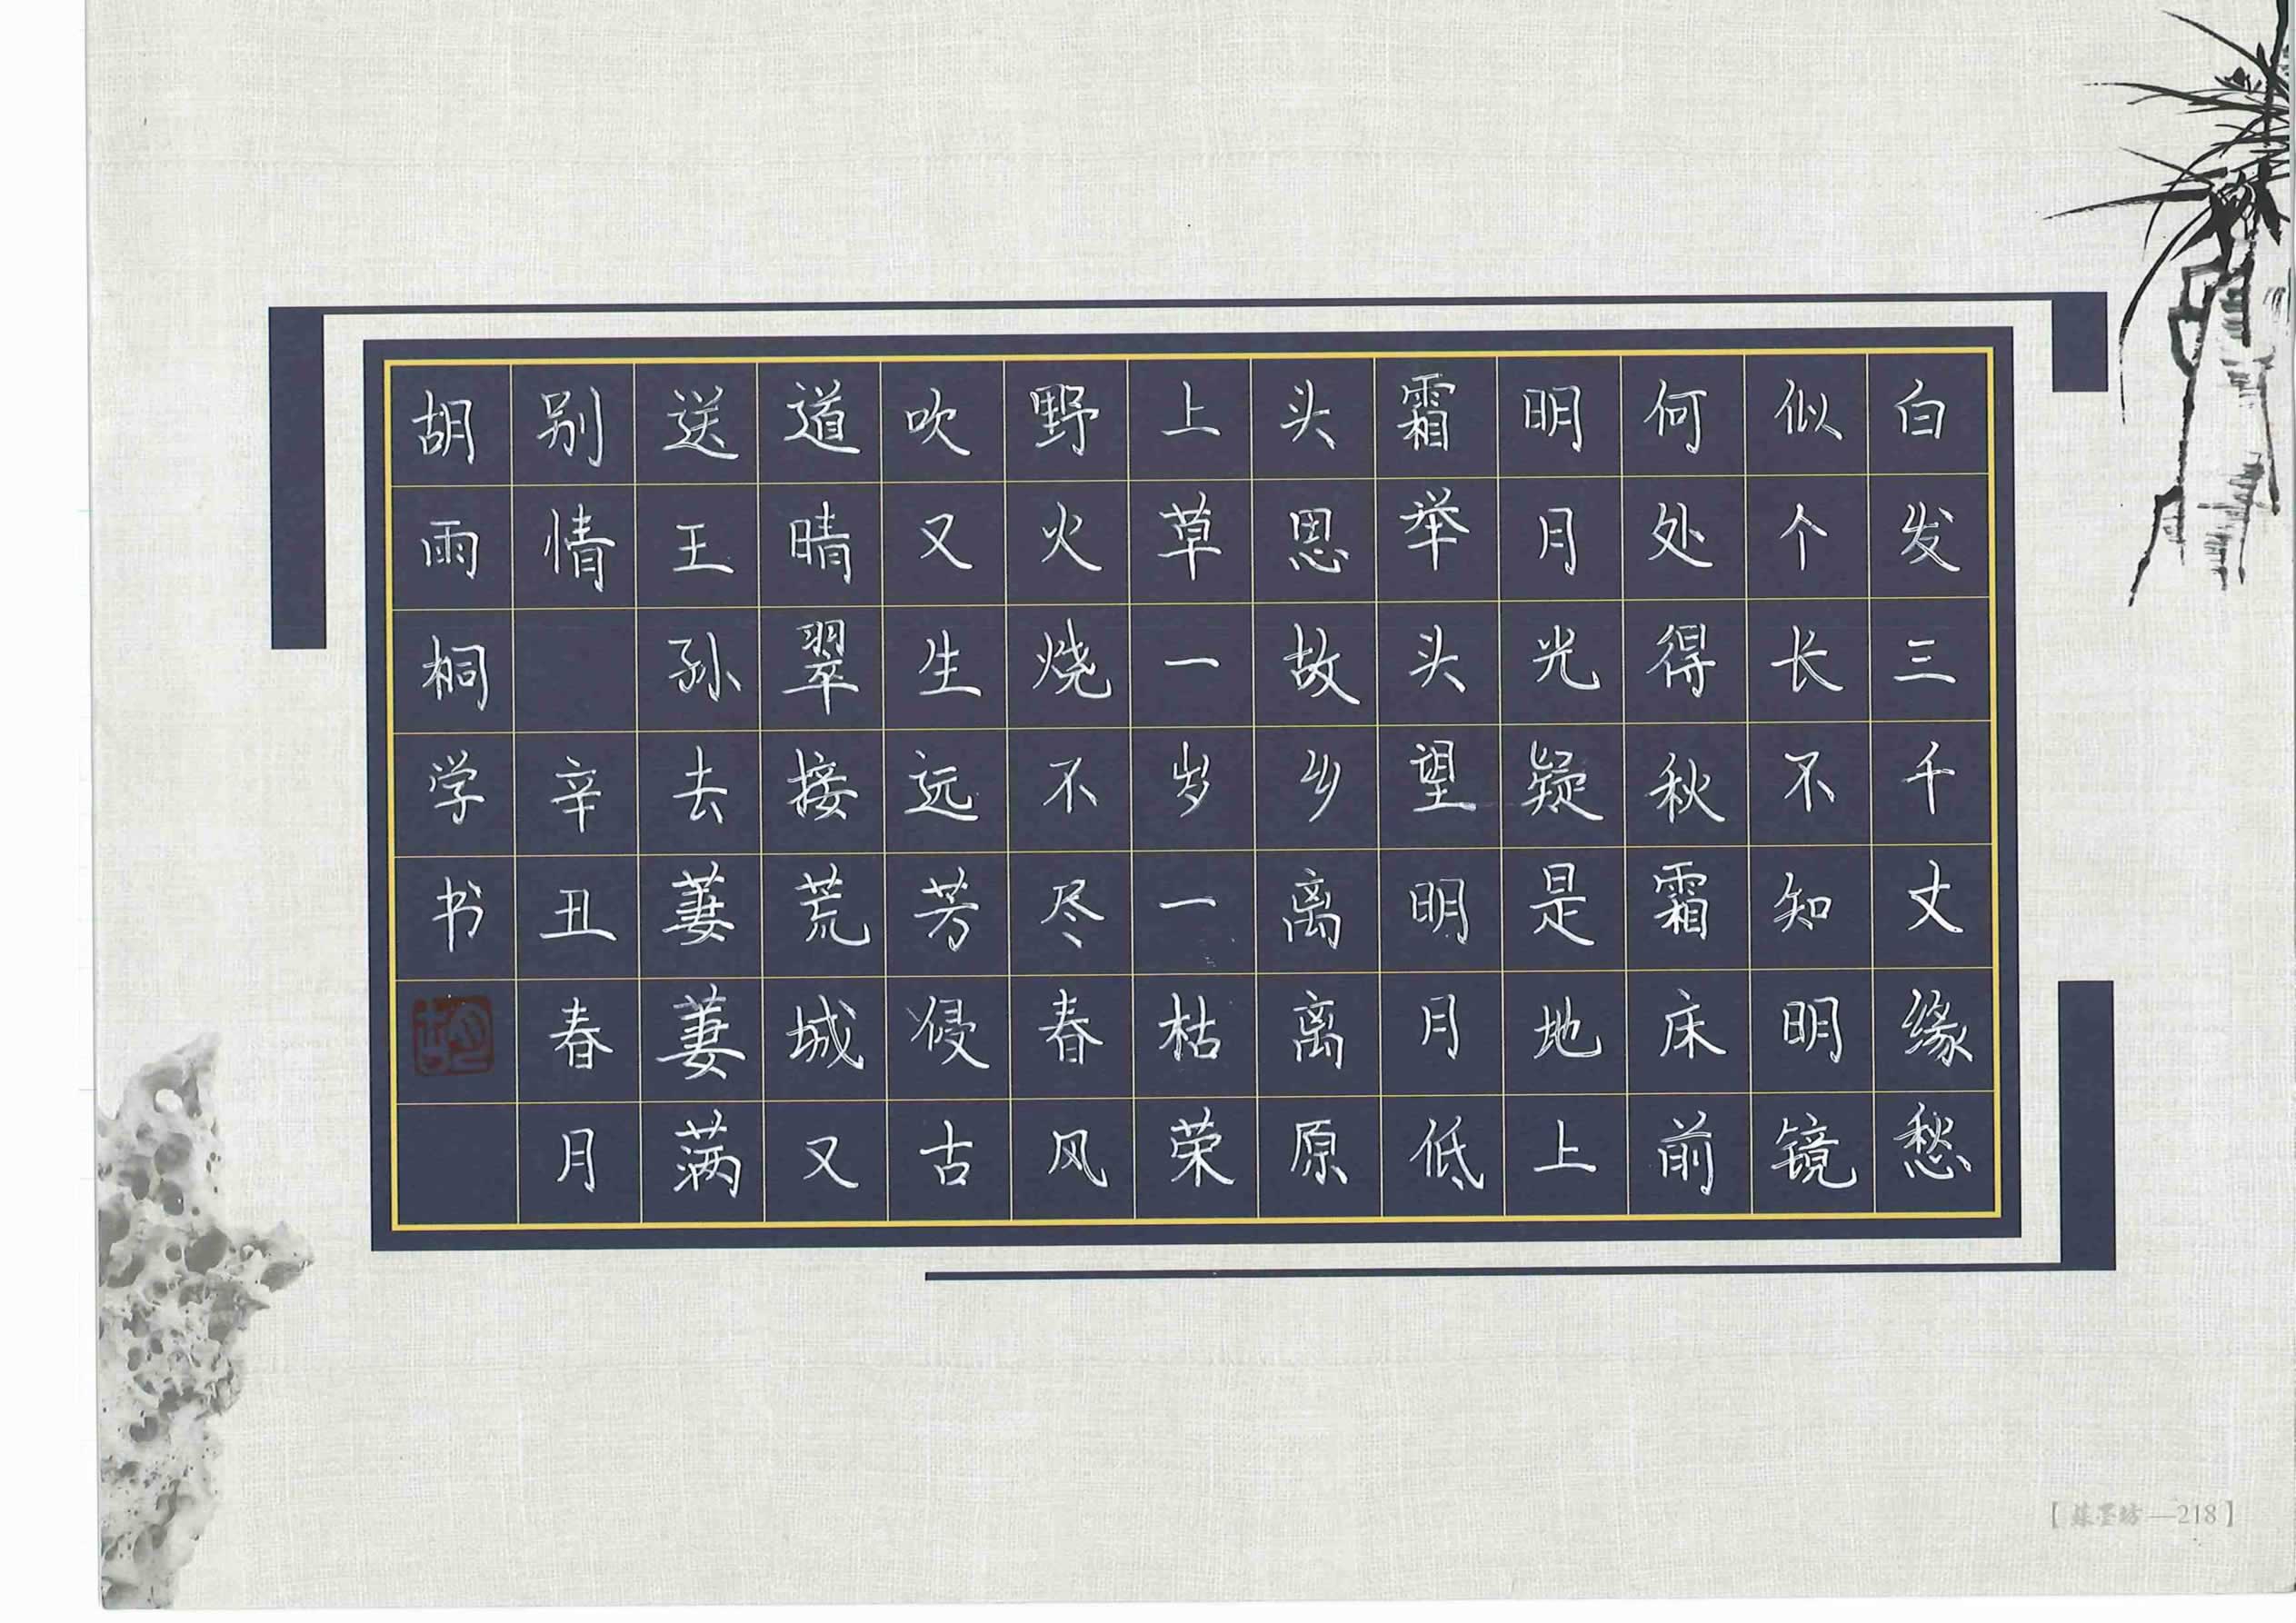 白发三千丈缘愁
似个长不知明镜
何处得秋霜床前
明月光疑是地上
霜举头望明月低
头思故乡离离原
上草一岁一枯荣
野火烧不尽春风
吹又生远芳侵古
道晴翠接荒城又
送王孙去萋萋满
别情 辛丑春月
胡雨桐学书
【蘇墨坊—218】